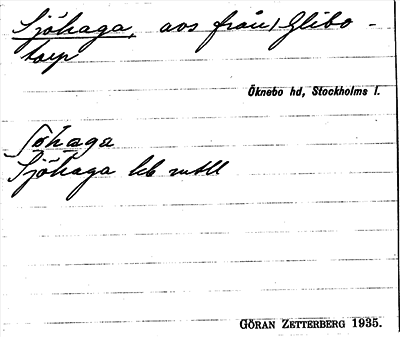 Sjöhaga, avs från, Glibo-
torp
Öknebo hd, Stockholms l.
Sjöhaga
GÖRAN ZETTERBERG 1935.